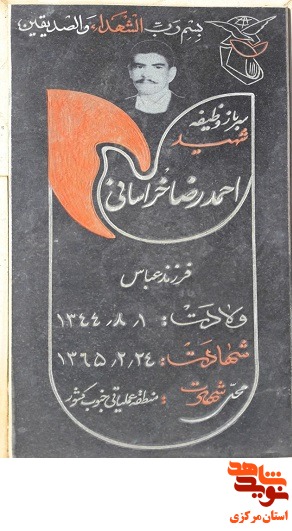 بسم رب الشهداء والصدیقین
سرباز وظیفه
شهید
احمدرضا خراسانی
فرزند عباس
ولادت: ۱۳۴۴/۸/۱
شهادت: ۱۳۶۵/۲/۲۴
محل شهادت: منطقه عملیاتی جنوب کشور
نوید شاهد
استان مرکزی